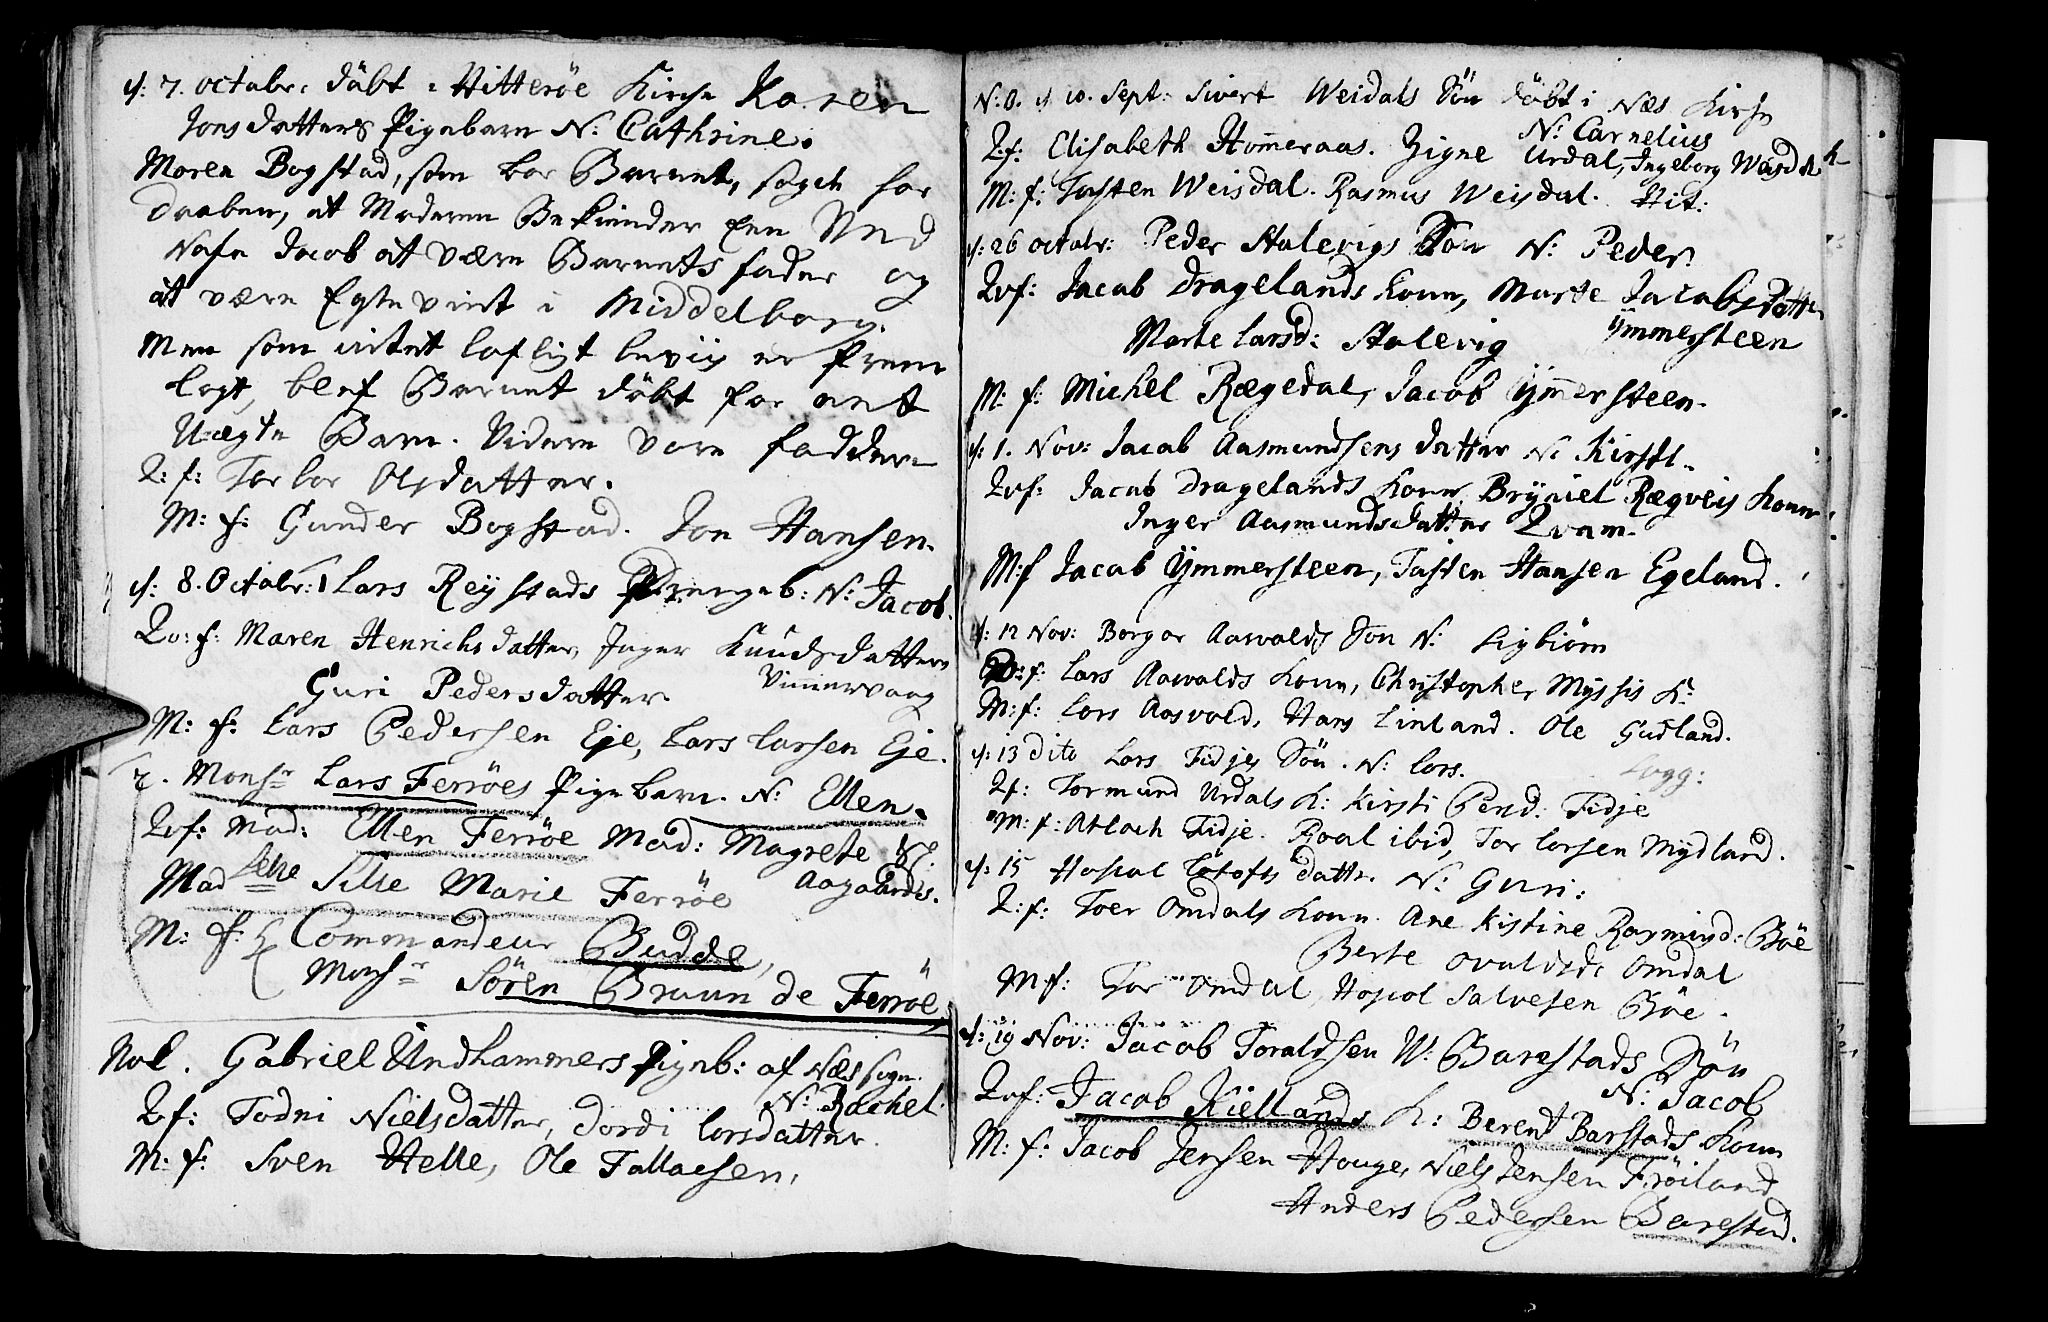 d: 7. octobr: döbt i Hitteröe Kirche Karen
Jons datters Pigebarn N: Cathrine.
Maren Bogstad, som bar Barnet, sagde for
daaben, at Moderen Bekiender Een Ved
Nafn Jacob at være Barnets fader og
at være Egte viet i Middelborg.
Men som intet lofligt beviis er frem
lagt, blef Barnet döbt for aet
Uægte Barn. Videre vare faddere
Q: f: Torbor Olsdatter.
M: f: Gunder Bogstad. Jon Hansen.
d: 8. Octobr: Lars Reystads Drengeb: N: Jacob
Qv: f: Maren Henrichsdatter, Inger Knudsdatter
Vimmervaag
Guri Pedersdatter.
M: f: Lars Pedersen Eje, Lars Larsen Eje.
Monsr Lars Ferröes Pigebarn. N: Ellen.
Qvf: Mad: Ellen Ferröe Mad: Magrete
Aagaards.
Madselle Sille Marie Ferröe
M: f: Commandeur Budde,
Monsr Sören Bruun de Ferröe
Nol. Gabriel Undhammers Pigeb: af Nes sogn.
N: Rachel.
Qvf: Todni Nielsdatter, Dordi Larsdatter.
M: f: Sven Helle, Ole Tallacsen.
N:B. d 10. Sept: Sivert Weisdals Sön döbt i Næs Kirke
N: Carnelius
Q:f: Elisabeth Homeraas. Signe Urdal, Ingeborg Weisdal
M: f: Tosten Weisdal. Rasmus Weisdal. Hit:
d: 26 octobr: Peder Stalevigs Sön N: Peder.
Qvf: Jacob Dragelands Kone, Marte Jacobsdatter
Ymmersteen
Marte Larsd: Stalevig
M: f: Michel Rægedal, Jacob Ymersteen.
d: 1. Nov: Jacob Aasmundsens datter N: Kirsti.
Qvf: Jacob Dragelands Kone, Bryniel Rægveis Kone
Inger Aasmundsdatter Qvam.
M:f Jacob Ymmersteen, Tosten Hansen Egeland.
d: 12 Nov: Borgar Aasvalds Sön N: Sigbiörn
Qv: f: Lars Aasvalds Kone, Christopher Myssis K:
M: f: Lars Aasvald, Hans Linland. Ole Gudland.
d: 13 dito Lars Fidjes Sön. N: Lars.
Q:f: Tormund Urdals K: Kirsti Pend. Fidje
M: f: Atlach Fidje. Roal ibid, Tor Larsen Mydland.
d: 15 Hoscol Lötofts datter N: Guri:
Q: f: Toer Omdals Kone. Ane Kistine Rasmusd: Böe
Berte Ovaldsd: Omdal
M f: Tor Omdal, Hoscol Salvesen Böe.
d: 19 Nov: Jacob Toraldsen W: Barestads Sön
N: Jacob
Qvf: Jacob Kiellands K: Berent Barstads Kone
M: f: Jacob Jensen Houge, Niels Jensen Fröiland
Anders Pedersen Barestad.